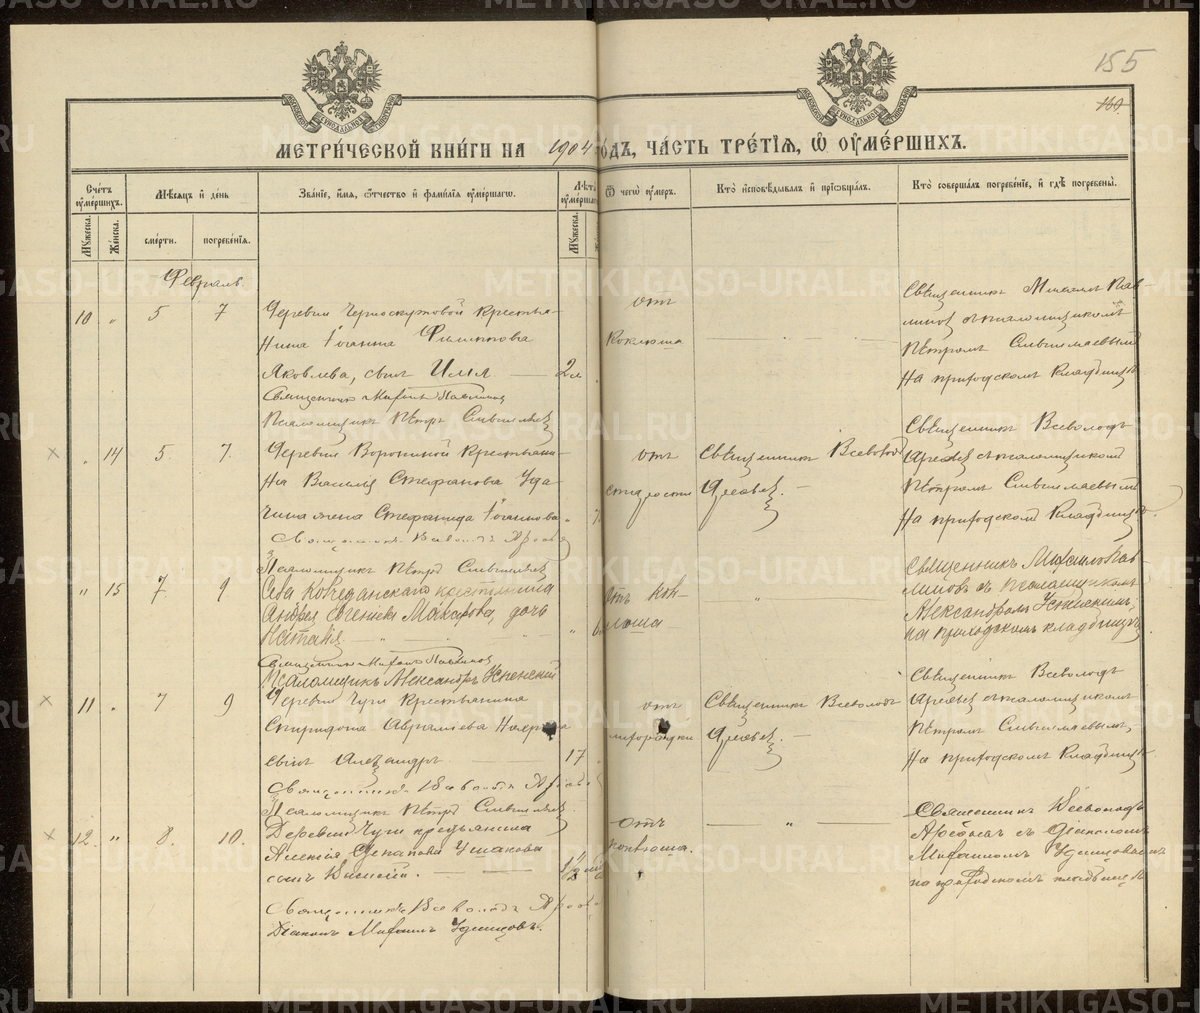 155
160
МЕТРИ́ЧЕСКОЙ КНИ́ГИ НА 1904 ГО́ДЪ, ЧА́СТЬ ТРЕ́ТІЯ, Ѡ҆ ОУ҆МЕ́РШИХЪ.
Сче́тъ оу҆ме́ршихъ.
Мѣ́сяцъ и҆ де́нь
Зва́ніе, и҆́мя, ѻ҆́тчество и҆ фами́лія оу҆ме́ршагѡ.
Лѣта̀ оу҆ме́ршагѡ
Ѿ чегѡ̀ оу҆́меръ.
Кто̀ и҆сповѣ́дывалъ и҆ прїѡбща́лъ.
Кто̀ соверша́лъ погребе́ніе, и҆ гдѣ̀ погребены̀.
Мꙋ́жеска.
Же́нска.
сме́рти.
погребе́нія.
Мꙋ́жеска.
Февраль
10 " 5 7
Деревни Черноскутовой крестья-
нина Іоанна Филиппова
Яковлева, сынъ Илья — 2 м
Священникъ Михаилъ Павлинов
Псаломщикъ Петръ
отъ
коклюша
Священникъ Михаилъ Пав-
линов съ псаломщикомъ
Петромъ
на приходскомъ кладбищѣ
" 14 5. 7.
Деревни Ворониной крестьяни-
на Василія Стефанова Уда-
чина жена Стефанида Іоаннова
Священникъ Всеволодъ
Псаломщикъ Петръ
отъ
старости
Священникъ Всеволодъ
Священникъ Всеволодъ
съ псаломщикомъ
Петромъ
на приходскомъ кладбищѣ
" 15 7. 9
Села Колчеданскаго крестьянина
Андрея Евгеніева Макарова, дочь
Наталія
Священникъ Михаилъ Павлинов
Псаломщикъ Александръ Успенский
Отъ кок-
люша
Священникъ Михаилъ Пав-
линовъ съ псаломщикомъ
Александромъ Успенскимъ,
на приходскомъ кладбищѣ
11 " 7 9
Деревни Чуги крестьянина
Спиридона Авраміева
сынъ Александръ 17
Священникъ Всеволодъ
Псаломщикъ Петръ
отъ
лихорадки
Священникъ Всеволодъ
Священникъ Всеволодъ
съ псаломщикомъ
Петромъ
на приходскомъ кладбищѣ
12. " 8. 10.
Деревни Чуги крестьянина
Алексія Степанова Ушакова
сынъ Василій.
Священникъ Всеволодъ
Діаконъ Михаилъ Удинцовъ.
отъ
коклюша.
Священникъ Всеволодъ
съ діакономъ
Михаиломъ Удинцовымъ
на приходскомъ кладбищѣ
METRIKI.GASO-URAL.RU